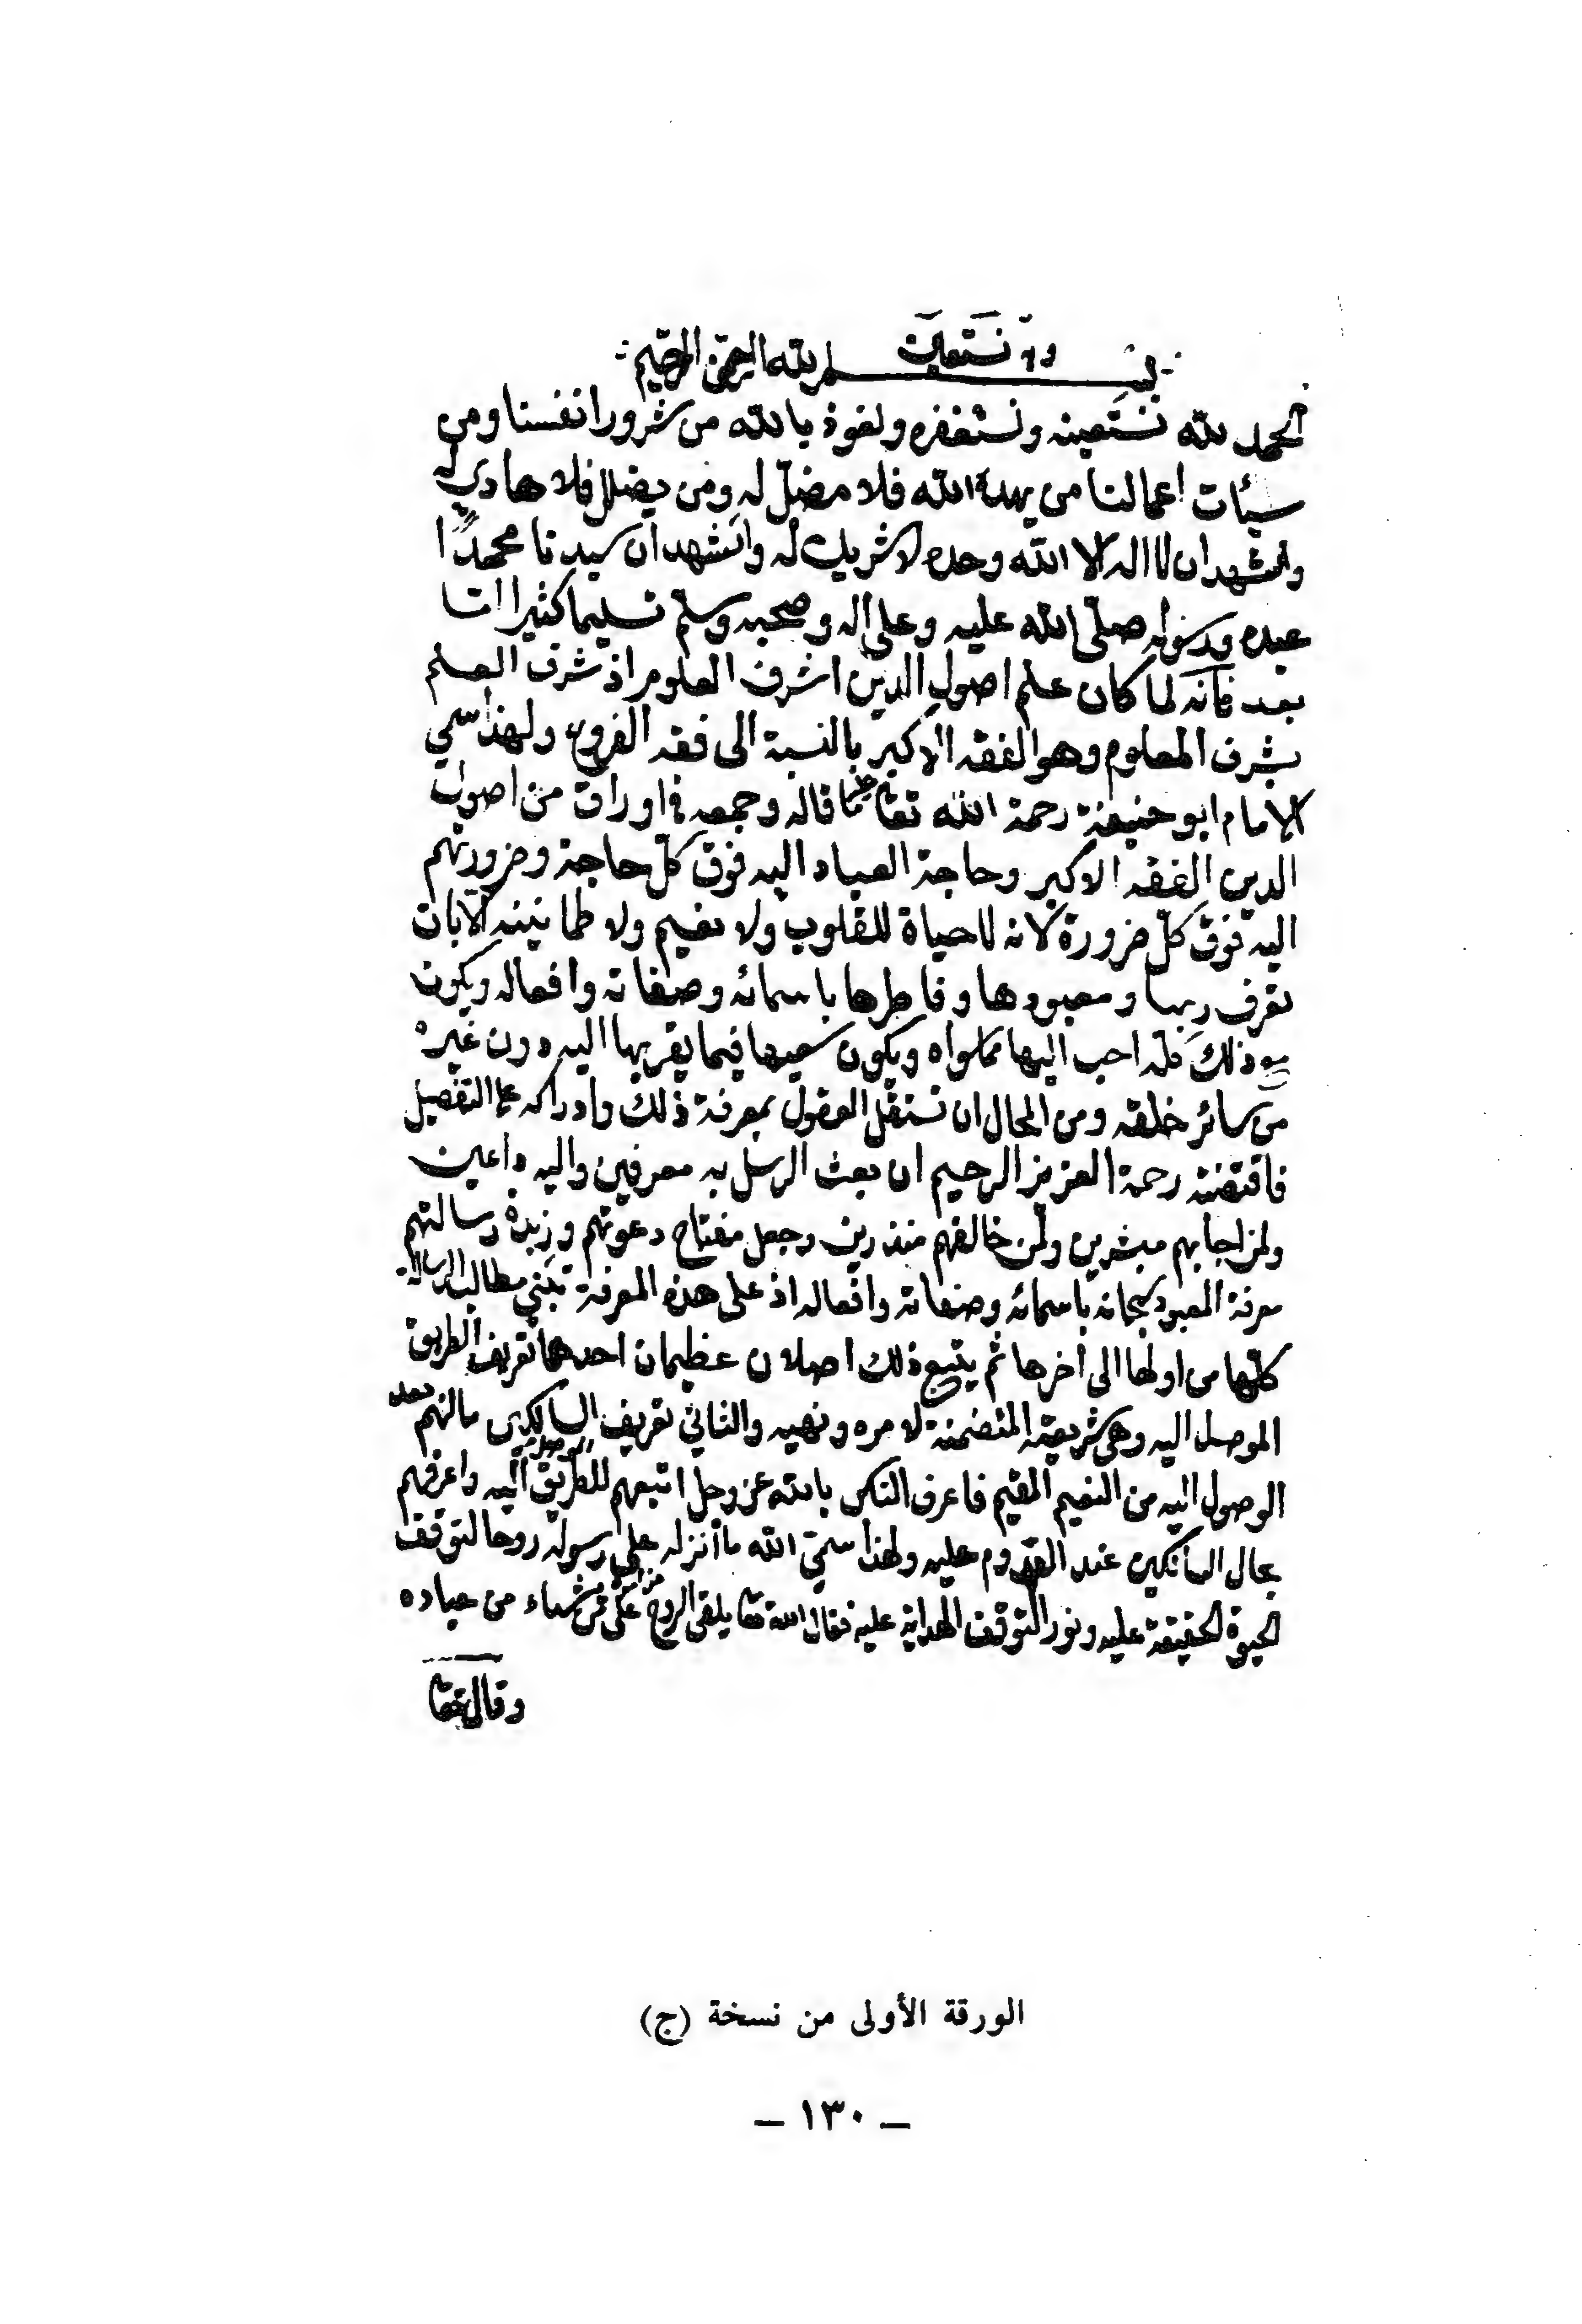 وبه نستعين
بسم الله الرحمن الرحيم
الحمد لله نستعينه ونستغفره ونعوذ بالله من شرور انفسنا ومن
سيئات اعمالنا من يهده الله فلا مضل له ومن يضلل فلا هادي له
ونشهد ان لا اله الا الله وحده لا شريك له وانشهد ان سيدنا محمدًا
عبده ورسوله صلّى الله عليه وعلى آله وصحبه وسلّم تسليما كثيرا امّا
بعد فانّه لما كان علم اصول الدين اشرف العلوم اذ شرف العلم
بشرف المعلوم وهو الفقه الاكبر بالنسبة الى فقه الفروع ولهذا سمي
الامام ابو حنيفة رحمة الله تعا عليه ما قاله وجمعه في اوراق من اصول
الدين الفقه الاكبر وحاجة العباد اليه فوق كلّ حاجة وضرورتهم
اليه فوق كلّ ضرورة لانه لا حياة للقلوب ولا نعيم ولا طمانينة الا بان
تعرف ربها ومعبودها وفاطرها باسمائه وصفاته وافعاله ويكون
مع ذلك كلّه احب اليها مما سواه ويكون سعيها فيما يقربها اليه دون غيره
من سائر خلقه ومن المحال ان تستقلّ العقول بمعرفة ذلك وادراكه على التفصيل
فاقتضته رحمة العزيز الرحيم ان بعث الرسل به معرفين واليه داعين
ولمن اجابهم مبشرين ولمن خالفهم منذرين وجعل مفتاح دعوتهم وزبدة رسالتهم
معرفة المعبود سبحانه باسمائه وصفاته وافعاله اذ على هذه المعرفة تبتني مطالب الرسالة
كلّها من اولها الى أخرها ثم يتبع ذلك اصلان عظيمان احدهما تعريف الطريق
الموصل اليه وهي شريعته المتضمنة لامره ونهيه والثاني تعريف السالكين ما لهم بعد
الوصول اليه من النعيم المقيم فاعرف الناس بالله عز وجل اتبعهم للطريق الموصل اليه واعرفهم
بحال السالكين عند القدوم عليه ولهذا سمّى الله ما أنزله على رسوله روحا لتوقف
الحيوة الحقيقة عليه ونور التوقف الهداية عليه فقال الله تعا يلقى الروح من امره على من يشاء من عباده
وقال تعا
الورقة الأولى من نسخة (ج)
– ١٣٠ –